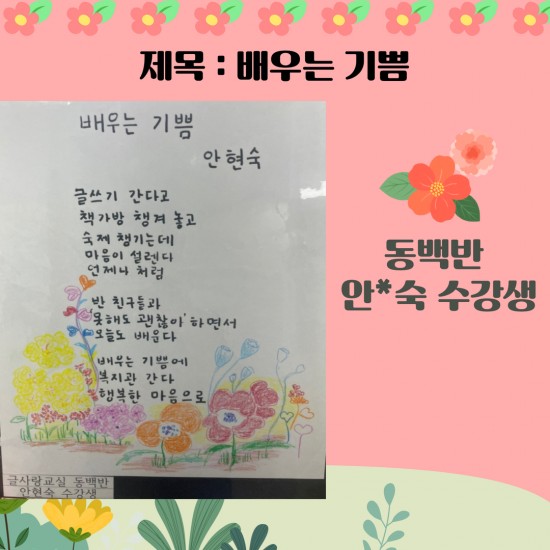 제목 : 배우는 기쁨
배우는 기쁨
안현숙
글쓰기 간다고
책가방 챙겨 놓고
숙제 챙기는데
마음이 설렌다
언제나 처럼
반 친구들과
'못해도 괜찮아' 하면서
오늘도 배운다
배우는 기쁨에
복지관 간다
행복한 마음으로
글사랑교실 동백반
안현숙 수강생
동백반
안*숙 수강생